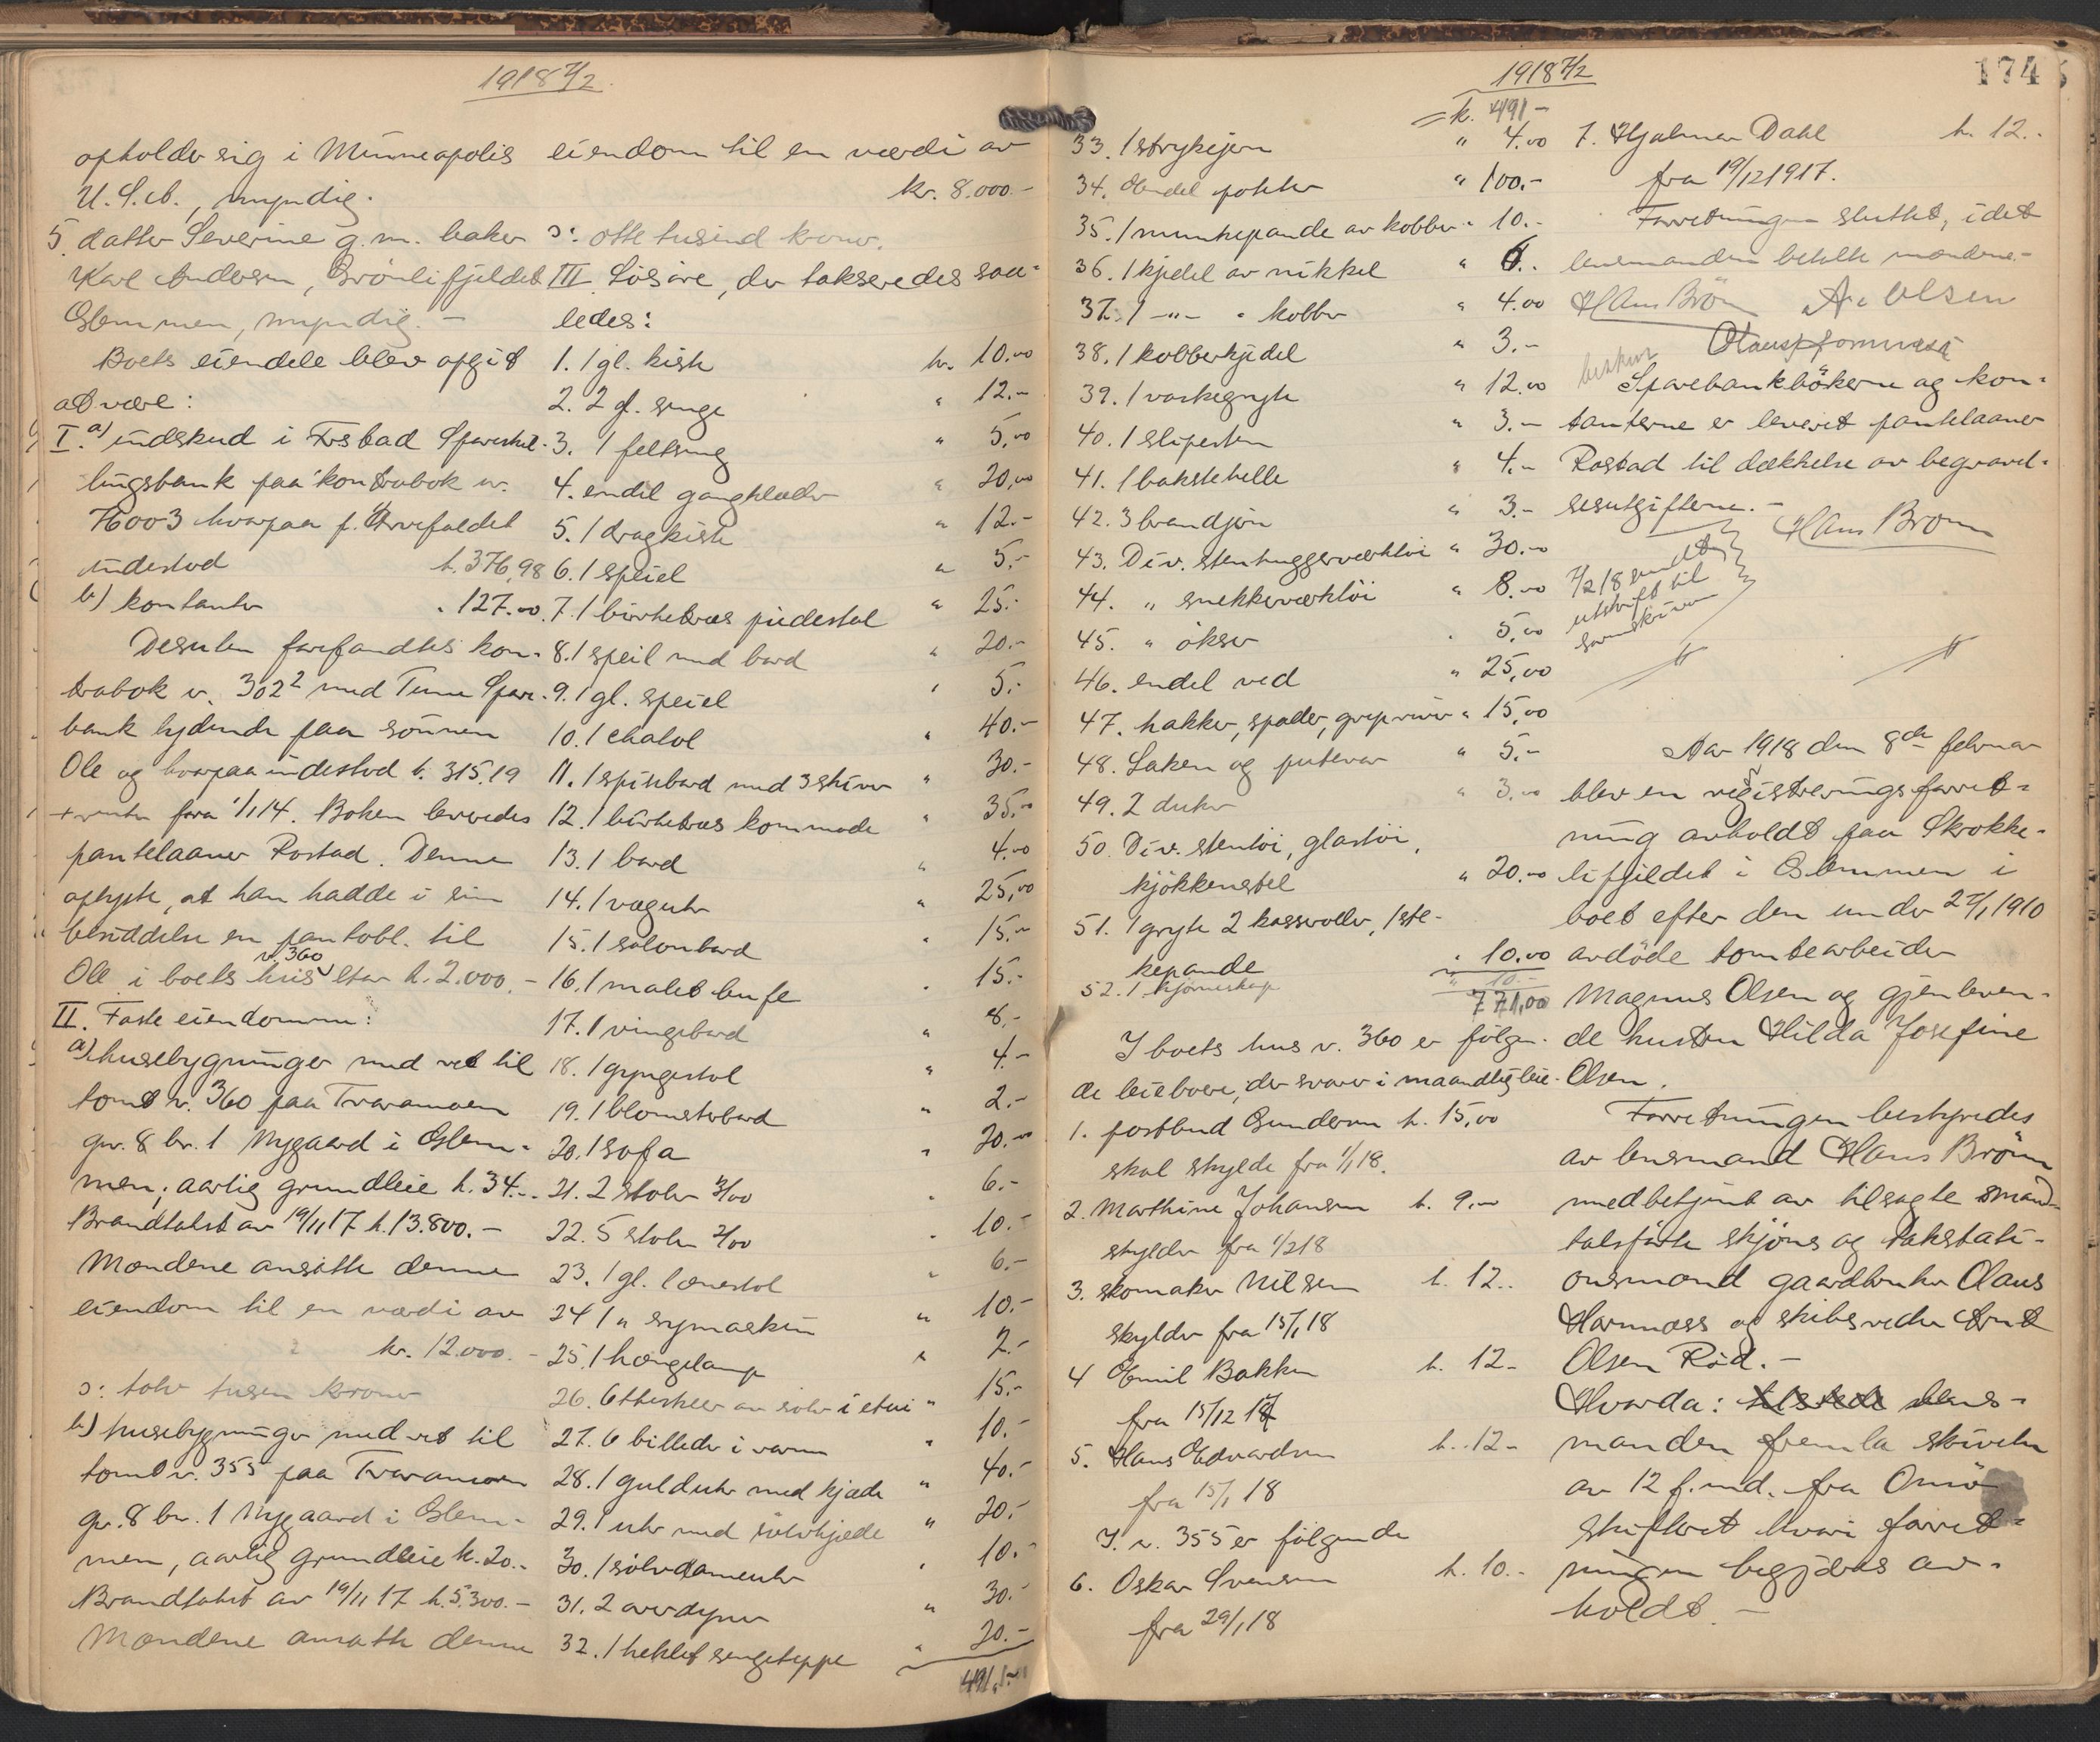 1918 7/2.
opholder sig i Minneapolis
U.S.A., myndig.
5. datter Severine g.m. baker
Karl Andersen, Brönlifjeldet
Glemmen, myndig. -
Boets eiendele blev opgit
at være:
I. a) indskud i Fr.stad Spareskil-
lingsbank paa kontrabok nr.
76003 hvorpaa f. arvefaldet
indestod k. 376,98
b) kontanter " 127.00
Desuten forefandtes kon-
trabok nr. 3022 med Tune Spare-
bank lydende paa sönnen
Ole og hvorpaa indestod k. 315.19
+ renter fra 1/1 14. Boken leveredes
pantelaaner Rostad. Denne
oplyste, at han hadde i sin
besiddelse en pantobl. til
Ole i boets hus nr. 360 stor k. 2.000.-
II. Faste eiendomme:
a) husebygninger med ret til
tomt nr. 360 paa Traramoen
gnr. 8 br. 1 Nygaard i Glem-
men; aarlig grundleie k. 34.-
Brandtakst av 19/11 17 k. 13.800.-
Mændene ansatte denne
eiendom til en værdi av
kr. 12.000.-
ɔ: tolv tusen kroner
b) husebygninger med ret til
tomt nr. 355 paa Traramoen
gnr. 8 bnr. 1 Nygaard i Glem-
men, aarlig grundleie k. 20.-
Brandtakst av 19/11 17 k. 5.300.-
Mændene ansatte denne
eiendom til en værdi av
kr. 8.000.-
ɔ: otte tusind kroner.
III. Lösöre, der takseredes saa-
ledes:
1. 1 gl. kiste kr. 10.00
2. 2 gl. senge " 12.-
3. 1 feltseng " 5,00
4. endel gangklæder " 20,00
5. 1 dragkiste " 12.-
6. 1 speiel " 5.-
7. 1 birketræs piedestal " 25.-
8. 1 speil med bord " 20.-
9. 1 gl. speiel " 5.-
10. 1 chatol " 40.-
11. 1 spisebord med 3 skiver " 30.-
12. 1 birketræs kommode " 35.00
13. 1 bord " 4.00
14. 1 vægur " 25,00
15. 1 salonbord " 15.-
16. 1 malet bufe " 15.-
17. 1 vingebord " 8.-
18. 1 gyngestol " 4.-
19. 1 blomsterbord " 2.-
20. 1 sofa " 20.00
21. 2 stoler 3/00 " 6.-
22. 5 stoler 2/00 " 10.-
23. 1 gl. lænestol " 6.-
24. 1 " symaskin " 10.-
25. 1 hængelampe " 2.-
26. 6 theskeer av sölv i etui " 15.-
27. 6 billeder i ramme " 10.-
28. 1 guldur med kjæde " 40.-
29. 1 ur med sölvkjede " 20.-
30. 1 sölvdameur " 10.-
31. 2 overdyner " 30.-
32. 1 heklet sengeteppe " 20.-
491.-
1918 7/2
174
= k. 491-
33. 1 strykejern " 4.00
34. Endel potter " 100.-
35. 1 munkepande av kobber " 10.-
36. 1 kjedel av nikkel " 6..
37. 1 -"- " kobber " 4.00
38. 1 kobberkjedel " 3.-
39. 1 vaskegryte " 12.00
40. 1 slipesten " 3.-
41. 1 bakstehelle " 4.-
42. 3 brandjern " 3.-
43. Div. stenhuggerverktöi " 30.-
44. " snekkerverktöi " 8.00
45. " økser " 5,00
46. endel ved " 25,00
47. hakker, spader, grep river " 15,00
48. Laken og putevar " 5.-
49. 2 duker " 3.00
50. Div. stentöi, glastöi,
kjökkenstel " 20.00
51. 1 gryte 2 kasseroller, 1 ste-
kepande " 10.00
52. 1 hjörneskap " 10.-
771,00
I boets hus nr. 360 er fölgen-
de leieboere, der svarer i maandlig leie
1. postbud Gundersen k. 15,00
skal skylde fra 1/1 18.
2. Marthine Johansen k. 9.00
skylder fra 1/2 18
3. skomaker Nilsen k. 12..
skylder fra 15/1 18
4 Emil Bakken k. 12-
fra 15/12 17
5. Hans Edvardsen k. 12-
fra 15/1 18
I nr. 355 er fölgende
6. Oskar Svensen k. 10.-
fra 29/1 18
7. Hjalmar Dahl k. 12..
fra 19/12 1917.
Forretningen sluttet, idet
lensmanden betalte mændene.-
Hans Brön A. Olsen
Olaus
Sparebankbökerne og kon-
tanterne er leveret pantelaaner
Rostad til dækkelse av begravel-
sesutgifterne.-
Hans Brönn
7/2 18 sendt
utskrift til
sorenskriver
Aar 1918 den 8de februar
blev en registreringsforret-
ning avholdt paa Skrokke-
lifjeldet i Glemmen i
boet efter den under 27/1 1910
avdöde tomtearbeider
Magnus Olsen og gjenleven-
de hustru Hilda Josefine
Olsen.
Forretningen bestyredes
av lensmand Hans Brönn
med betjent av tilsagte mand-
talsförte skjöns og takstati-
onsmænd gaardbruker Olaus
Hornnæss og skibsreder Arnt
Olsen Röd.-
Hvorda: lens-
manden fremla skrivelse
av 12 f.md. fra Onsö
skifteret hvori forret-
ningen begjæres av-
holdt.-